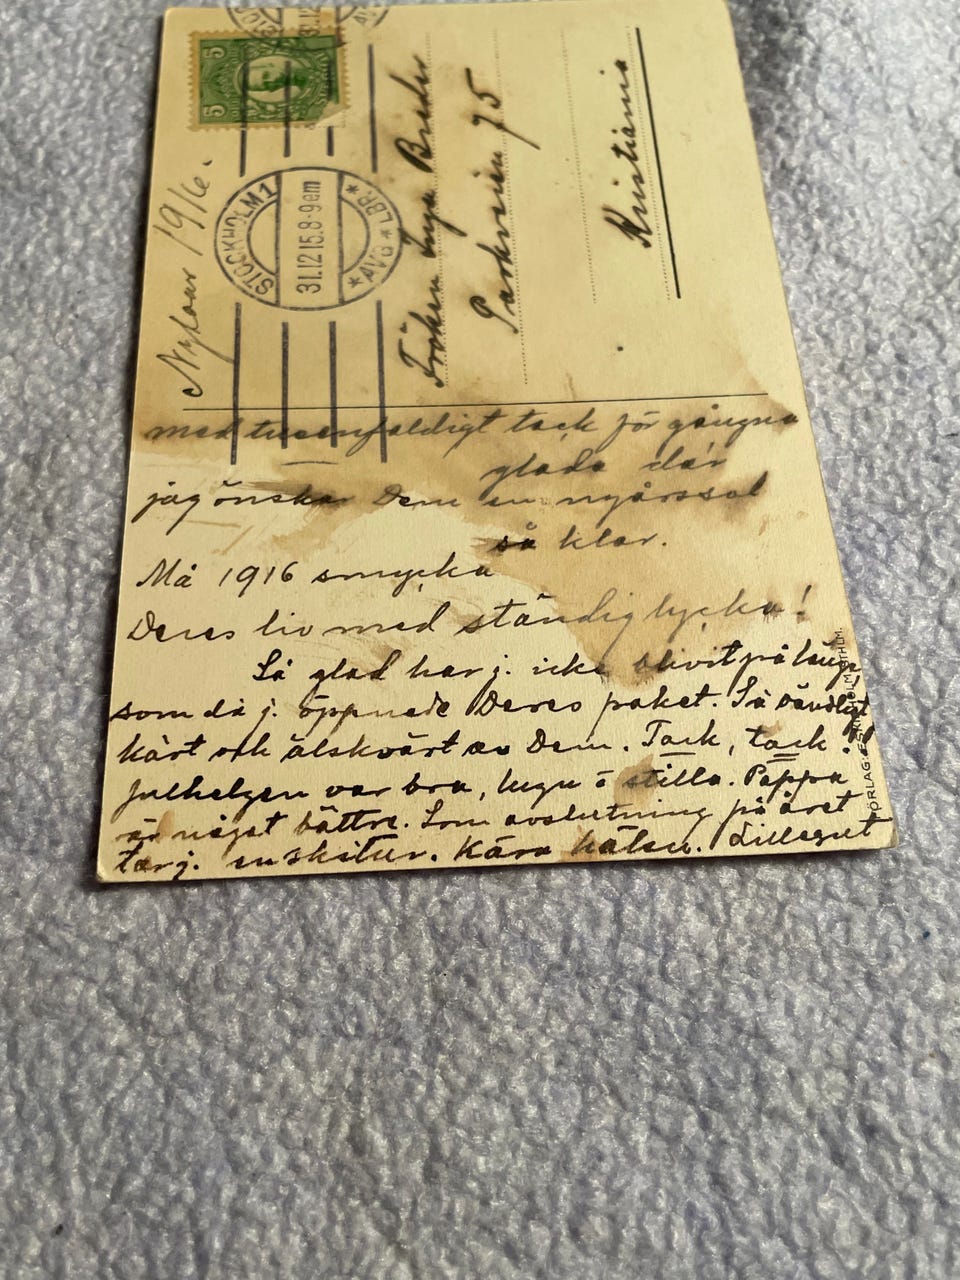 5
5
STOCKHOLM 1
31.12.15.8-9em
*AVG*LBR.*
Nyåar 1916.
Fröken Inga Bruder
Parkveien 75
Kristiania
med tusenfaldigt tack för gångna
glada dar
jag önskar Dem en nyårssol
så klar.
Må 1916 smycka
Deres liv med ständig lycka!
Så glad har j. icke blivit på länge,
som då j. öppnade Deres paket. Så
kärt och älskvärt av Dem. Tack, tack!
Julhelgen var bra, lugn o stilla. Pappa
är något bättre. Som avslutning på året
tar j. en skitur. Kära hälsn.
FÖRLAG: